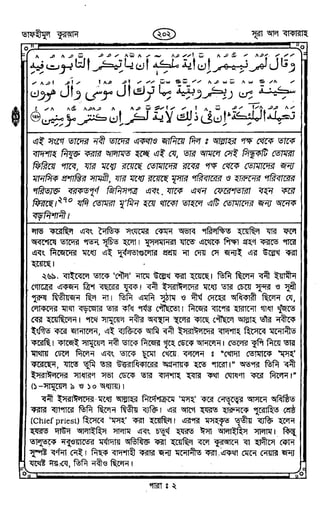 তাফহীমুল কুরআন
২০২
সূরা আল বাকারাহ
وَقَالَ لَهُمْ نَبِيُّهُمْ إِنَّ آيَةَ مُلْكِهِ أَنْ يَأْتِيَكُمُ التَّابُوتُ فِيهِ
سَكِينَةٌ مِنْ رَبِّكُمْ وَبَقِيَّةٌ مِمَّا تَرَكَ آلُ مُوسَى وَآلُ هَارُونَ
تَحْمِلُهُ الْمَلَائِكَةُ إِنَّ فِي ذَلِكَ لَآيَةً لَكُمْ إِنْ كُنْتُمْ مُؤْمِنِينَ
এই সংগে তাদের নবী তাদের একথাও জানিয়ে দিল : আল্লাহর পক্ষ থেকে তাকে
বাদশাহ নিযুক্ত করার আলামত হচ্ছে এই যে, তার আমলে সেই সিন্দুকটি তোমরা
ফিরিয়ে পাবে, যার মধ্যে রয়েছে তোমাদের রবের পক্ষ থেকে তোমাদের জন্য
মানসিক প্রশান্তির সামগ্রী, যার মধ্যে রয়েছে মূসার পরিবারের ও হারুনের পরিবারের
পরিত্যক্ত বরকতপূর্ণ জিনিসপত্র এবং যাকে এখন ফেরেশতারা বহন করে
ফিরছে।২৭০ যদি তোমরা মু'মিন হয়ে থাকো তাহলে এটি তোমাদের জন্য অনেক
বড় নিশানী।
লাভ করেছিল এবং নৈতিক সংযমের কেমন অভাব পরিলক্ষিত হয়েছিল যার ফলে
অবশেষে তাদের পতন সূচিত হলো। মুসলমানরা যাতে এথেকে শিক্ষা গ্রহণ করতে পারে
এবং নিজেদের মধ্যে এই দুর্বলতাগুলোর প্রশ্রয় না দেয় সে জন্যই এর উল্লেখ করা
হয়েছে।
২৬৯. বাইবেলে তাকে 'শৌল' নামে উল্লেখ করা হয়েছে। তিনি ছিলেন বনী ইয়ামীন
গোত্রের একজন ত্রিশ বছরের যুবক। বনী ইসরাঈলদের মধ্যে তার চেয়ে সুন্দর ও সুশ্রী
পুরুষ দ্বিতীয়জন ছিল না। তিনি এমনি সুঠাম ও দীর্ঘ দেহের অধিকারী ছিলেন যে,
লোকদের মাথা বড়জোর তার কাঁধ পর্যন্ত পৌঁছতো। নিজের বাপের হারানো গাধা খুঁজতে
বের হয়েছিলেন। পথে সামুয়েল নবীর অবস্থান স্থলের কাছে পৌঁছলে আল্লাহ তাঁর নবীকে
ইংগিত করে জানালেন, এই ব্যক্তিকে আমি বনী ইসরাঈলদের বাদশাহ হিসেবে মনোনীত
করেছি। কাজেই সামুয়েল নবী তাকে নিজের গৃহে ডেকে আনলেন। তেলের কুপি নিয়ে তার
মাথায় ঢেলে দিলেন এবং তাকে চুমো খেয়ে বললেন : "খোদা তোমাকে 'মসহ'
করেছেন, যাতে তুমি তার উত্তরাধিকারের অগ্রনায়ক হতে পারো।" অতপর তিনি বনী
ইসরাঈলদের সাধারণ সভা ডেকে তার বাদশাহ হবার কথা ঘোষণা করে দিলেন।"
(১–সামুয়েল ৯ ও ১০ অধ্যায়)।
বনী ইসরাঈলদের মধ্যে আল্লাহর নির্দেশক্রমে 'মসহ' করে নেতৃত্বের আসনে অধিষ্ঠিত
করার ব্যাপারে তিনি ছিলেন দ্বিতীয় ব্যক্তি। এর আগে হযরত হারুনকে পুরোহিত শ্রেষ্ঠ
(Chief priest) হিসেবে 'মসহ' করা হয়েছিল। এরপর মসহকৃত তৃতীয় ব্যক্তি হলেন
হযরত দাউদ আলাইহিস সালাম এবং চতুর্থ হযরত ঈসা আলাইহিস সালাম। কিন্তু
তালুতকে নবুওয়াতের মর্যাদায় অভিষিক্ত করা হয়েছিল বলে কুরআনে বা হাদীসে কোন
সুস্পষ্ট বর্ণনা নেই। নিছক বাদশাহী করার জন্য মনোনীত করা একথা মেনে নেয়ার জন্য
যথেষ্ট নয় যে, তিনি নবীও ছিলেন।
পারা : ২